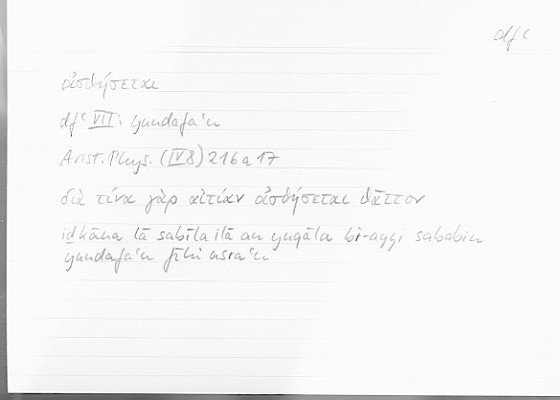 dfʿ
ὠσθήσεται
dfʿ VII: yundafaʿu
Arist. Phys. (IV 8) 216a17
διὰ τίνα γὰρ αἰτίαν ὠσθήσεται θᾶττον
iḏ kāna lā sabīla ilā an yuqāla bi-ayyi sababin
yundafaʿu fīhi asraʿu